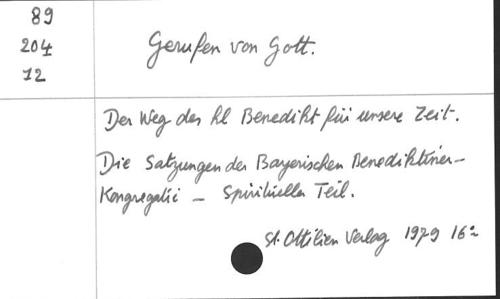 89
204
12
Gerufen von Gott.
Der Weg des hl Benedikt für unsere Zeit.
Die Satzungen der Bayerischen Benediktiner-
Kongregatio - Spiritueller Teil.
St. Ottilien Verlag 1979 16°